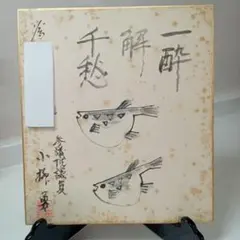 一酔
解
千愁
参議院議員
小柳勇